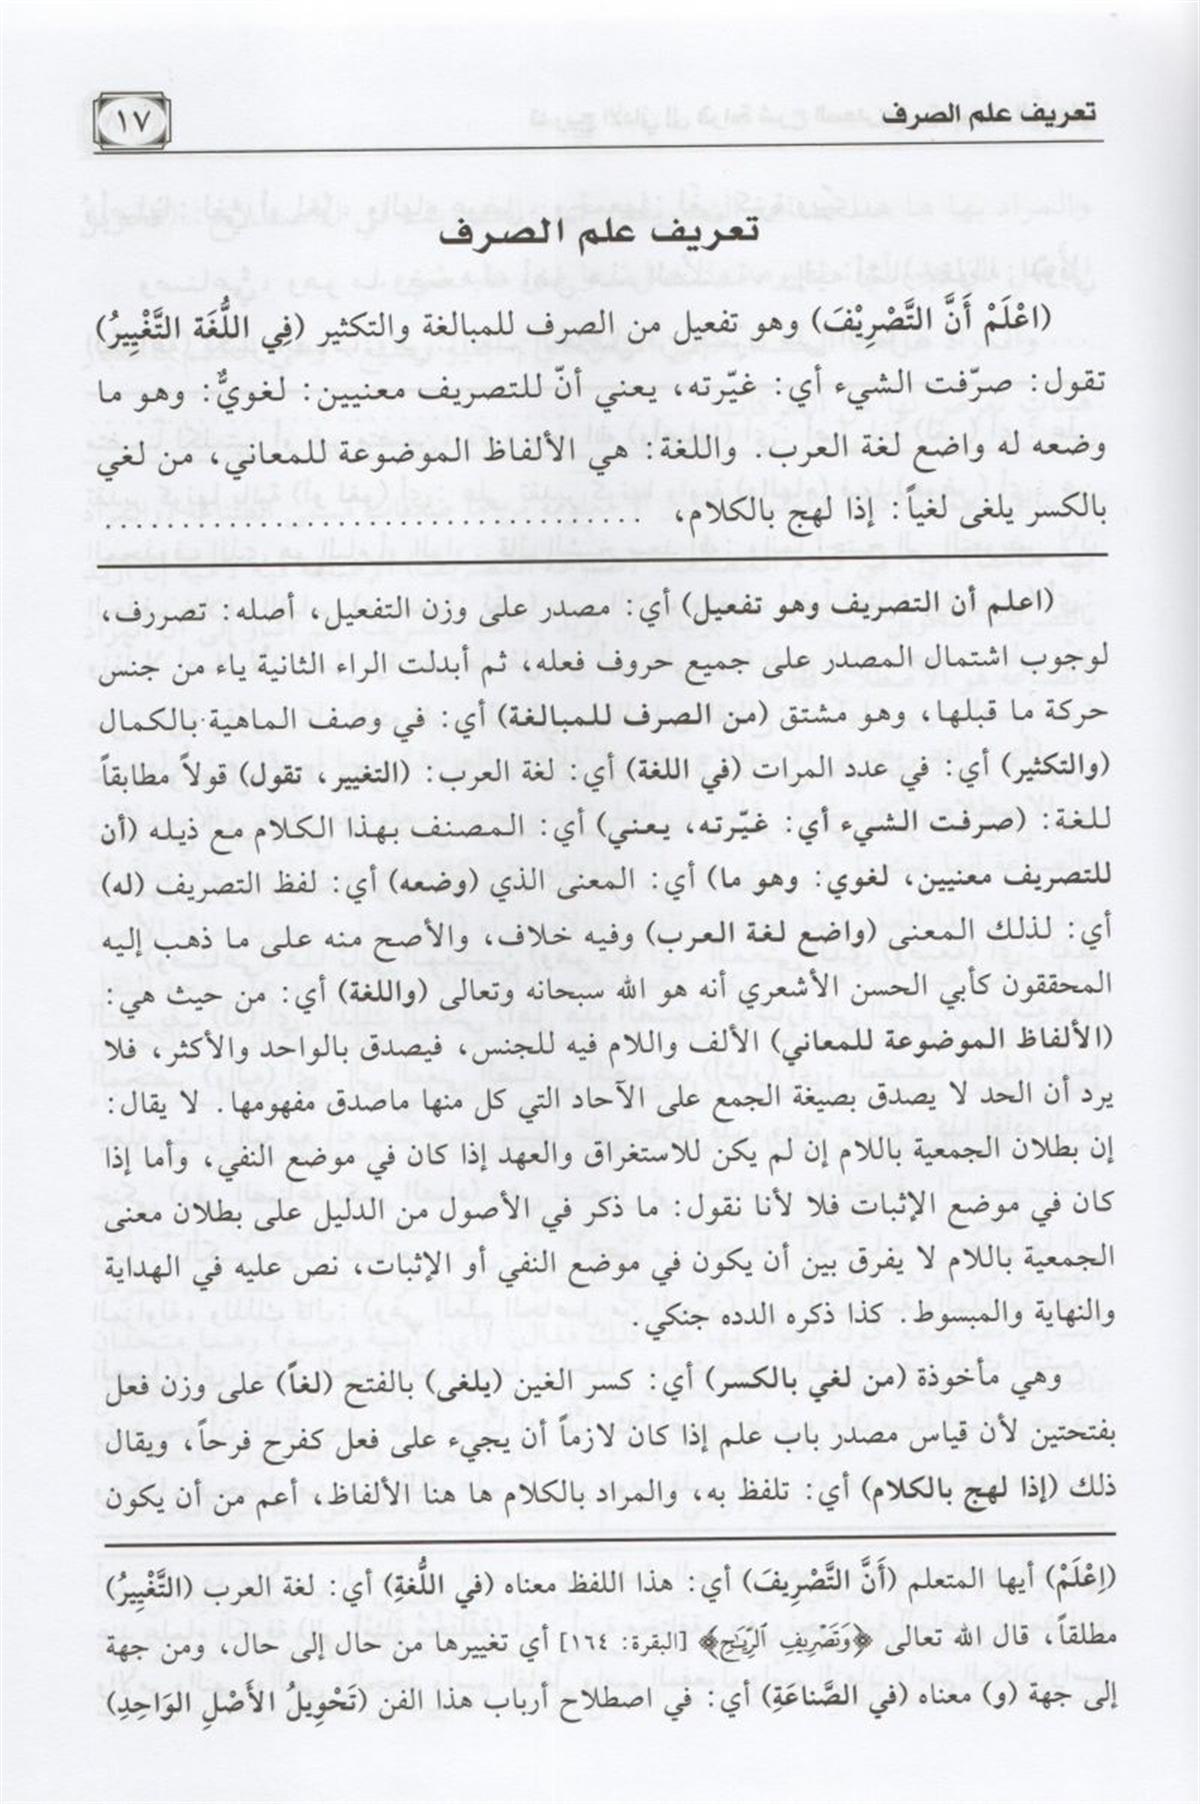 تعريف علم الصرف
١٧
تعريف علم الصرف
(اعْلَمْ أَنَّ التَّصْرِيْفَ) وهو تفعيل من الصرف للمبالغة والتكثير (فِي اللُّغَة التَّغْيِيرُ)
تقول: صرّفت الشيء أي: غيّرته، يعني أنّ للتصريف معنيين: لغويٌّ: وهو ما
وضعه له واضع لغة العرب. واللغة: هي الألفاظ الموضوعة للمعاني، من لغي
بالكسر يلغى لغياً: إذا لهج بالكلام، ....................................
(اعلم أن التصريف وهو تفعيل) أي: مصدر على وزن التفعيل، أصله: تصررف،
لوجوب اشتمال المصدر على جميع حروف فعله، ثم أبدلت الراء الثانية ياء من جنس
حركة ما قبلها، وهو مشتق (من الصرف للمبالغة) أي: في وصف الماهية بالكمال
(والتكثير) أي: في عدد المرات (في اللغة) أي: لغة العرب: (التغيير، تقول) قولاً مطابقاً
للغة: (صرفت الشيء أي: غيّرته، يعني) أي: المصنف بهذا الكلام مع ذيله (أن
للتصريف معنيين، لغوي: وهو ما) أي: المعنى الذي (وضعه) أي: لفظ التصريف (له)
أي: لذلك المعنى (واضع لغة العرب) وفيه خلاف، والأصح منه على ما ذهب إليه
المحققون كأبي الحسن الأشعري أنه هو الله سبحانه وتعالى (واللغة) أي: من حيث هي:
(الألفاظ الموضوعة للمعاني) الألف واللام فيه للجنس، فيصدق بالواحد والأكثر، فلا
يرد أن الحد لا يصدق بصيغة الجمع على الآحاد التي كل منها ماصدق مفهومها. لا يقال:
إن بطلان الجمعية باللام إن لم يكن للاستغراق والعهد إذا كان في موضع النفي، وأما إذا
كان في موضع الإثبات فلا لأنا نقول: ما ذكر في الأصول من الدليل على بطلان معنى
الجمعية باللام لا يفرق بين أن يكون في موضع النفي أو الإثبات، نص عليه في الهداية
والنهاية والمبسوط. كذا ذكره الدده جنكي.
وهي مأخوذة (من لغي بالكسر) أي: كسر الغين (يلغى) بالفتح (لغاً) على وزن فعل
بفتحتين لأن قياس مصدر باب علم إذا كان لازماً أن يجيء على فعل كفرح فرحاً، ويقال
ذلك (إذا لهج بالكلام) أي: تلفظ به، والمراد بالكلام ها هنا الألفاظ، أعم من أن يكون
(اِعْلَمْ) أيها المتعلم (أَنَّ التَّصْرِيفَ) أي: هذا اللفظ معناه (في اللُّغةِ) أي: لغة العرب (التَّغْيِيرُ)
مطلقاً، قال الله تعالى ﴿وَتَصْرِيفِ ٱلرِّيَـٰحِ﴾ [البقرة: ١٦٤] أي تغييرها من حال إلى حال، ومن جهة
إلى جهة (و) معناه (في الصِّنَاعَةِ) أي: في اصطلاح أرباب هذا الفن (تَحْوِيلُ الأَصْلِ الوَاحِدِ)